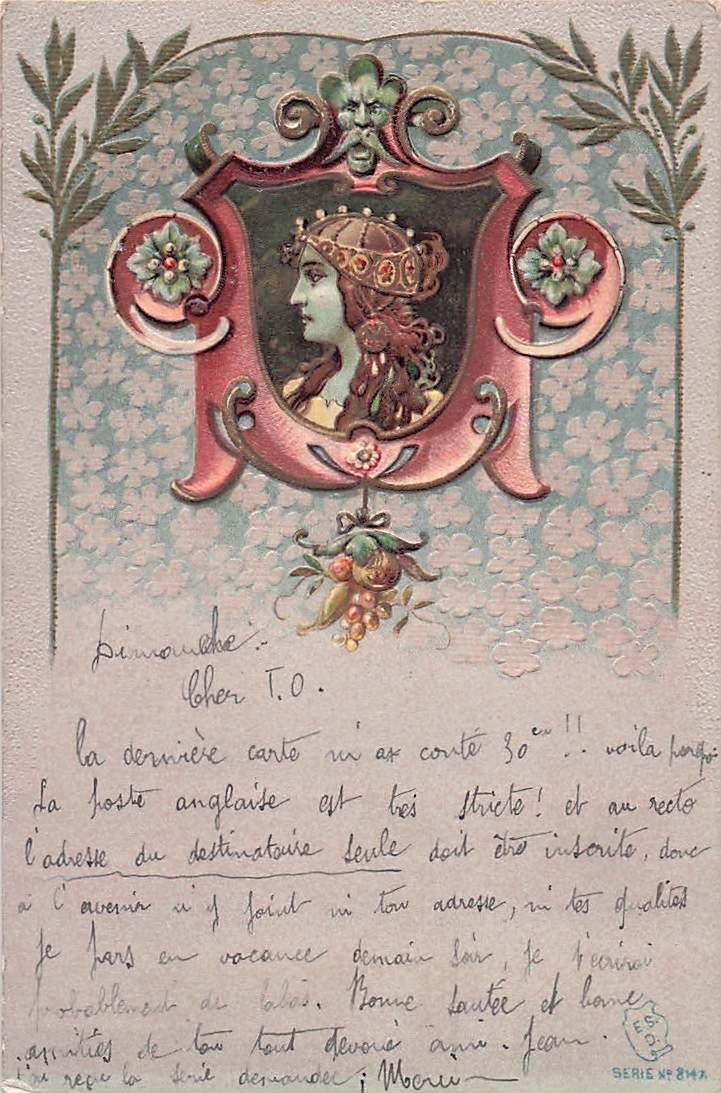 Dimanche.
Cher T.O.
la dernière carte m'a couté 30 !! voila
La poste anglaise est très stricte! et au recto
l'adresse du destinataire seule doit être inscrite, donc
à l'avenir n'y joint ni ton adresse, ni tes qualités
Je pars en vacance demain soir, je t'écrirai
probablement de labas. Bonne santée et bonne
amitiés de ton tout devoué ami. Jean.
J'ai reçu la serie demandée; Merci
E.S.D.
SERIE No 8147.